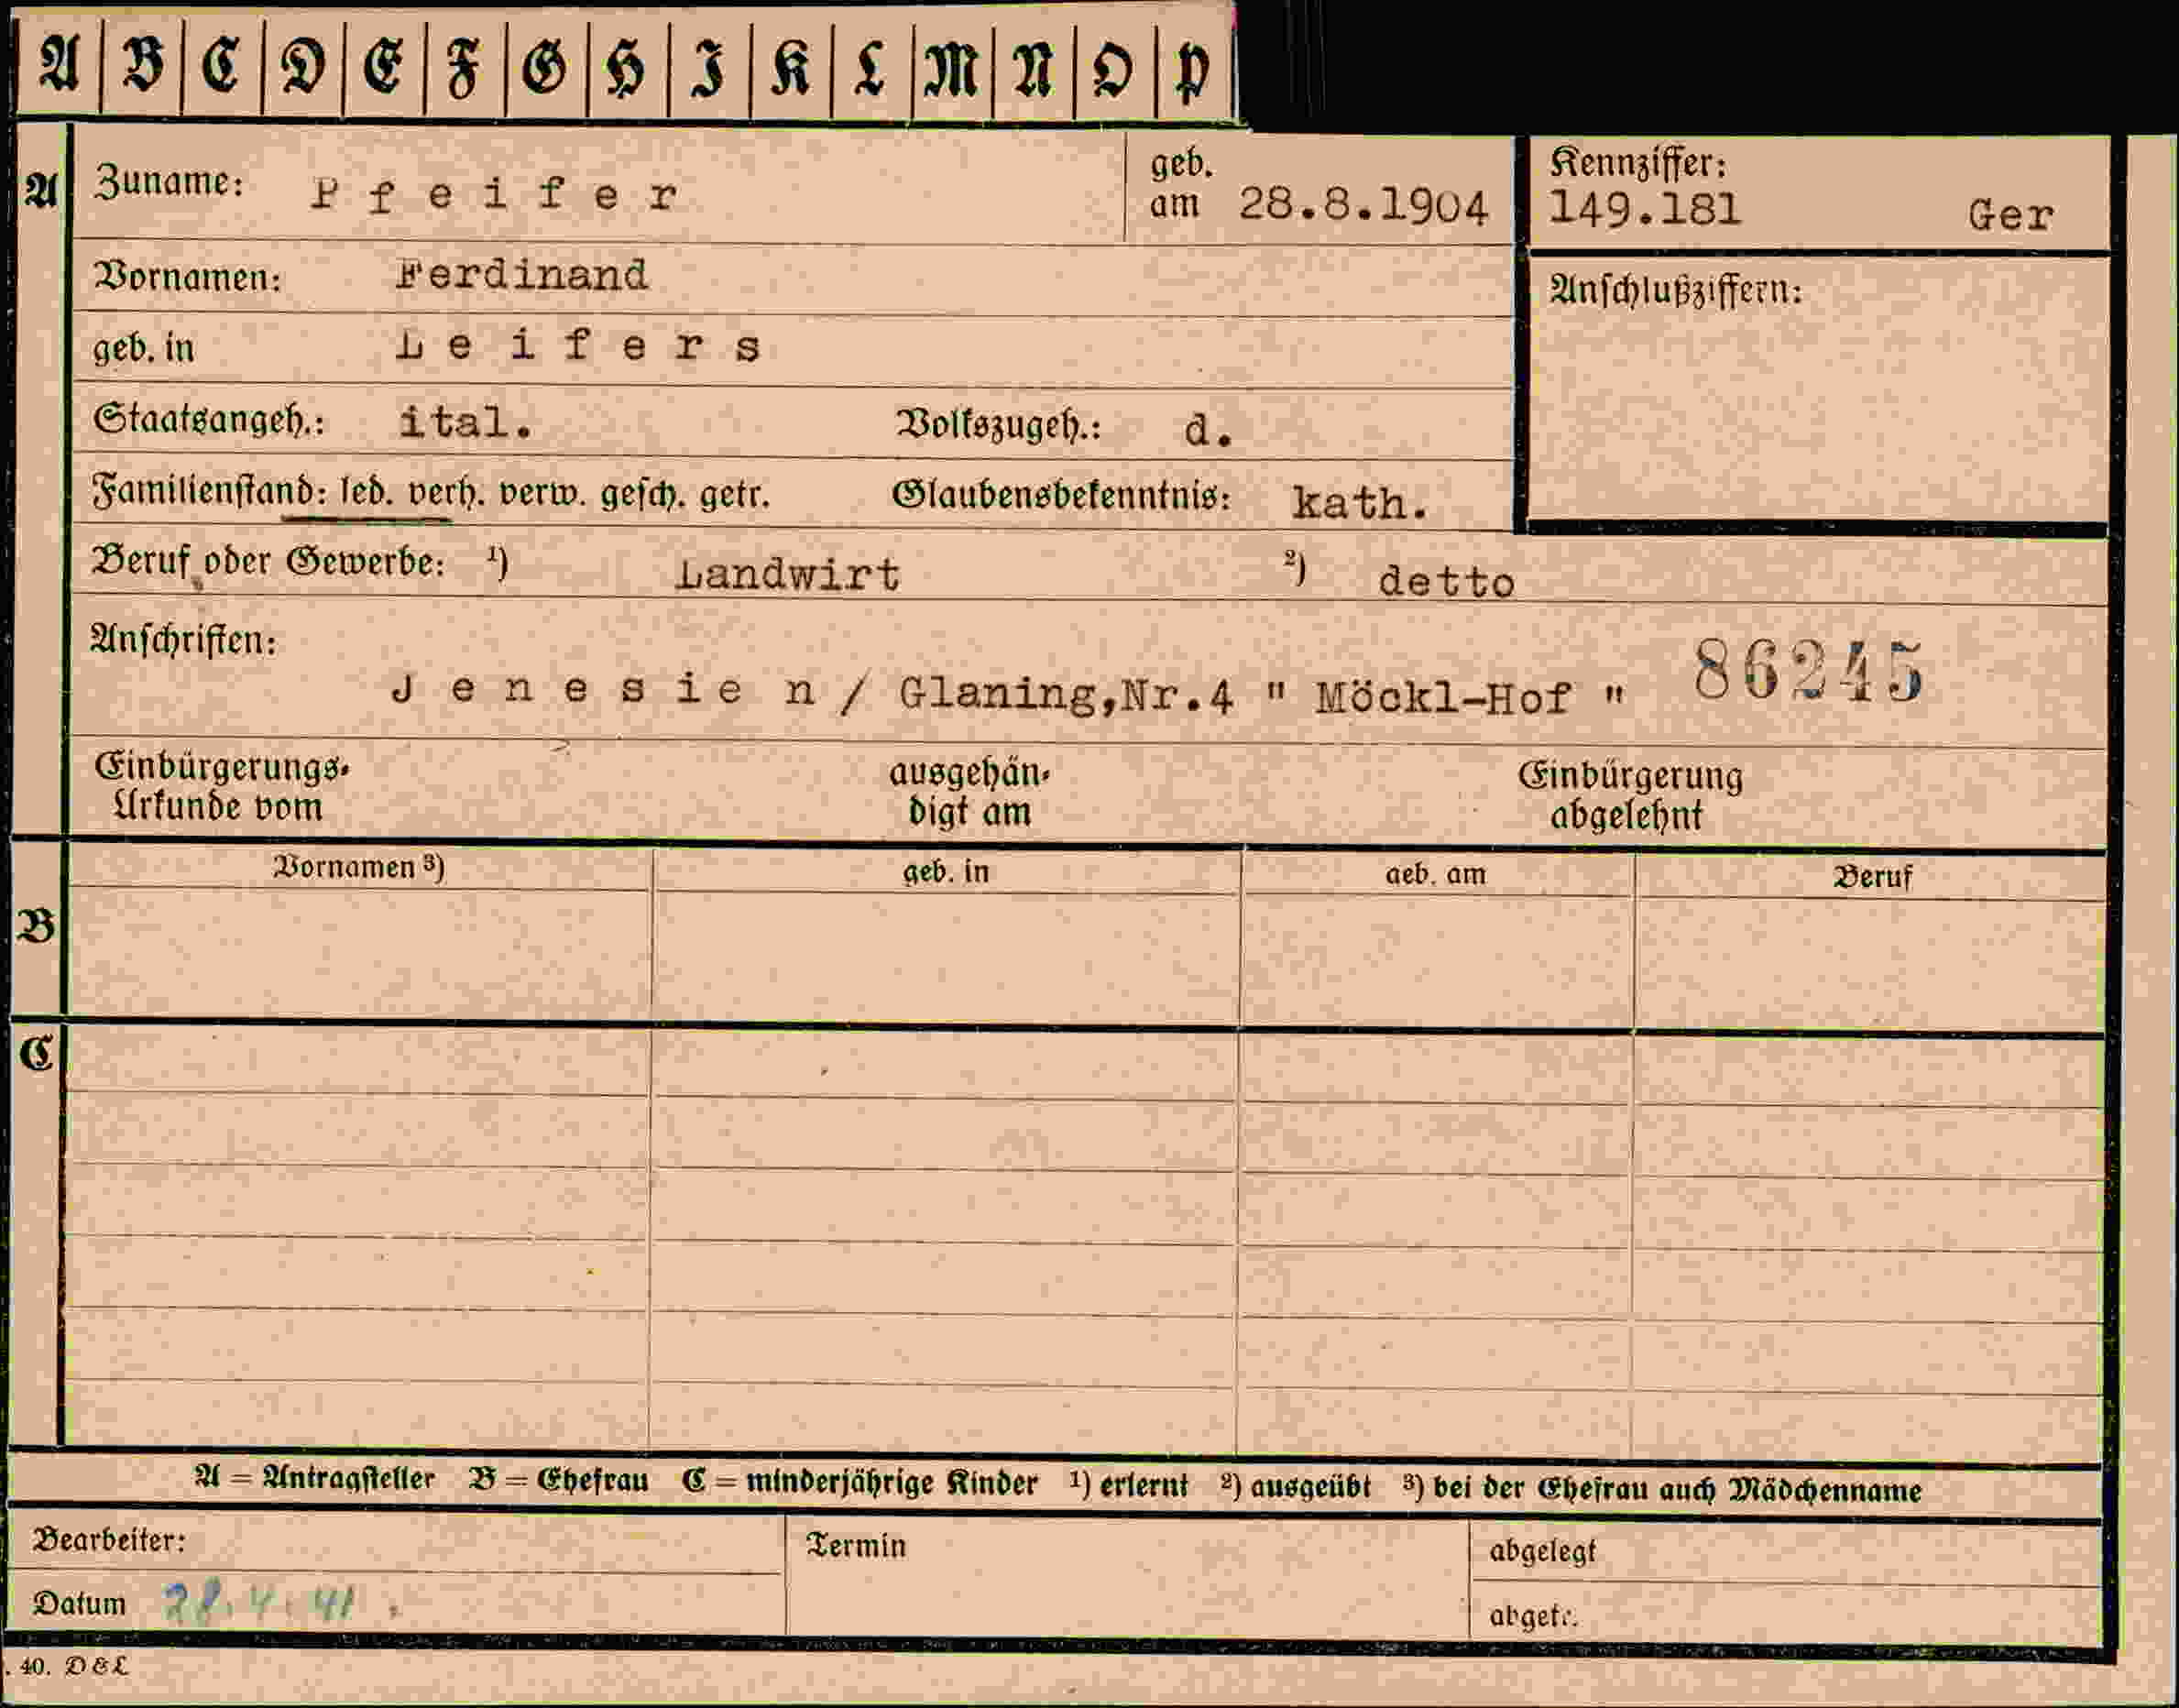 A B C D E F G H I K L M N O P
A Zuname: Pfeifer geb. am 28.8.1904 Kennziffer: 149.181 Ger
Vornamen: Ferdinand Anschlußziffern:
geb. in Leifers
Staatsangeh.: ital. Volkszugeh.: d.
Familienstand: led. verh. verw. gesch. getr. Glaubensbekenntnis: kath.
Beruf oder Gewerbe: 1) Landwirt 2) detto
Anschriften:
Jenesien / Glaning,Nr.4 " Möckl-Hof " 86245
Einbürgerungs- Urkunde vom ausgehän- digt am Einbürgerung abgelehnt
Vornamen 3) geb. in geb. am Beruf
B
C
A = Antragsteller B = Ehefrau C = minderjährige Kinder 1) erlernt 2) ausgeübt 3) bei der Ehefrau auch Mädchenname
Bearbeiter: Termin abgelegt
Datum 28.4.41. abgetr.
. 40. D & L